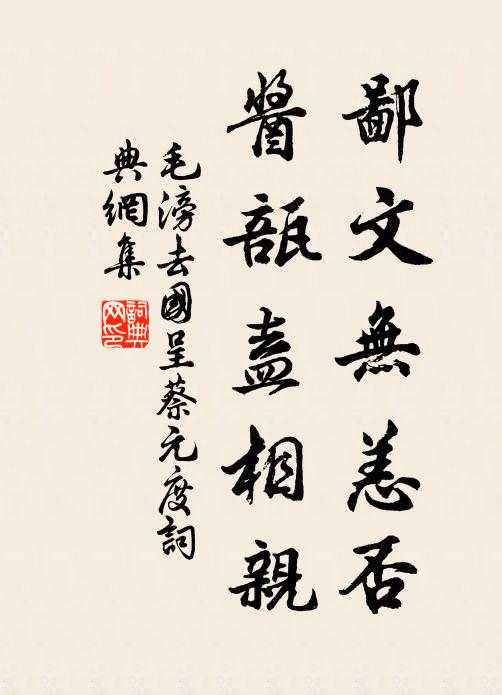 鄙文無恙否
醬瓿盍相親
毛滂去國呈蔡元度詞
典網集
詞典網印